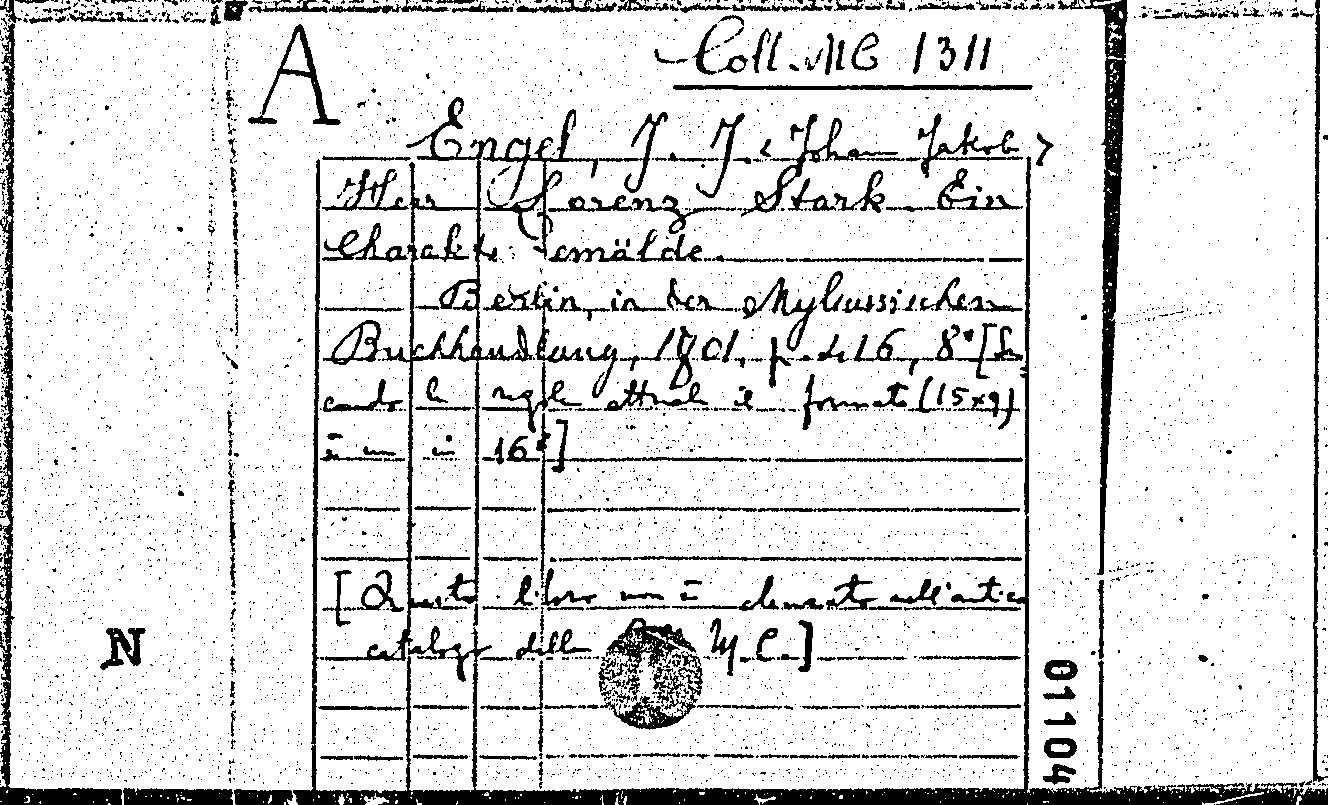 A
Coll. MC 1311
Engel, J. J. <Johann Jakob>
Herr Lorenz Stark. Ein
Charakte emälde.
Berlin, in der Myliussischen
Buchhandlung, 1801, p. 416, 8° [Se
condo le regole attuali il formato (15x9)
è un in 16°]
[Questo libro non è elencato nell'antico
catalogo della M.C.]
N
01104